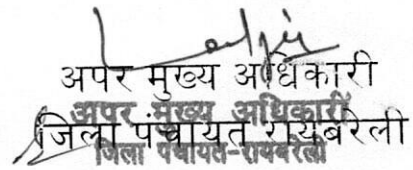 अपर मुख्य अधिकारी
अपर मुख्य अधिकारी
जिला पंचायत रायबरेली
जिला पंचायत-रायबरेली